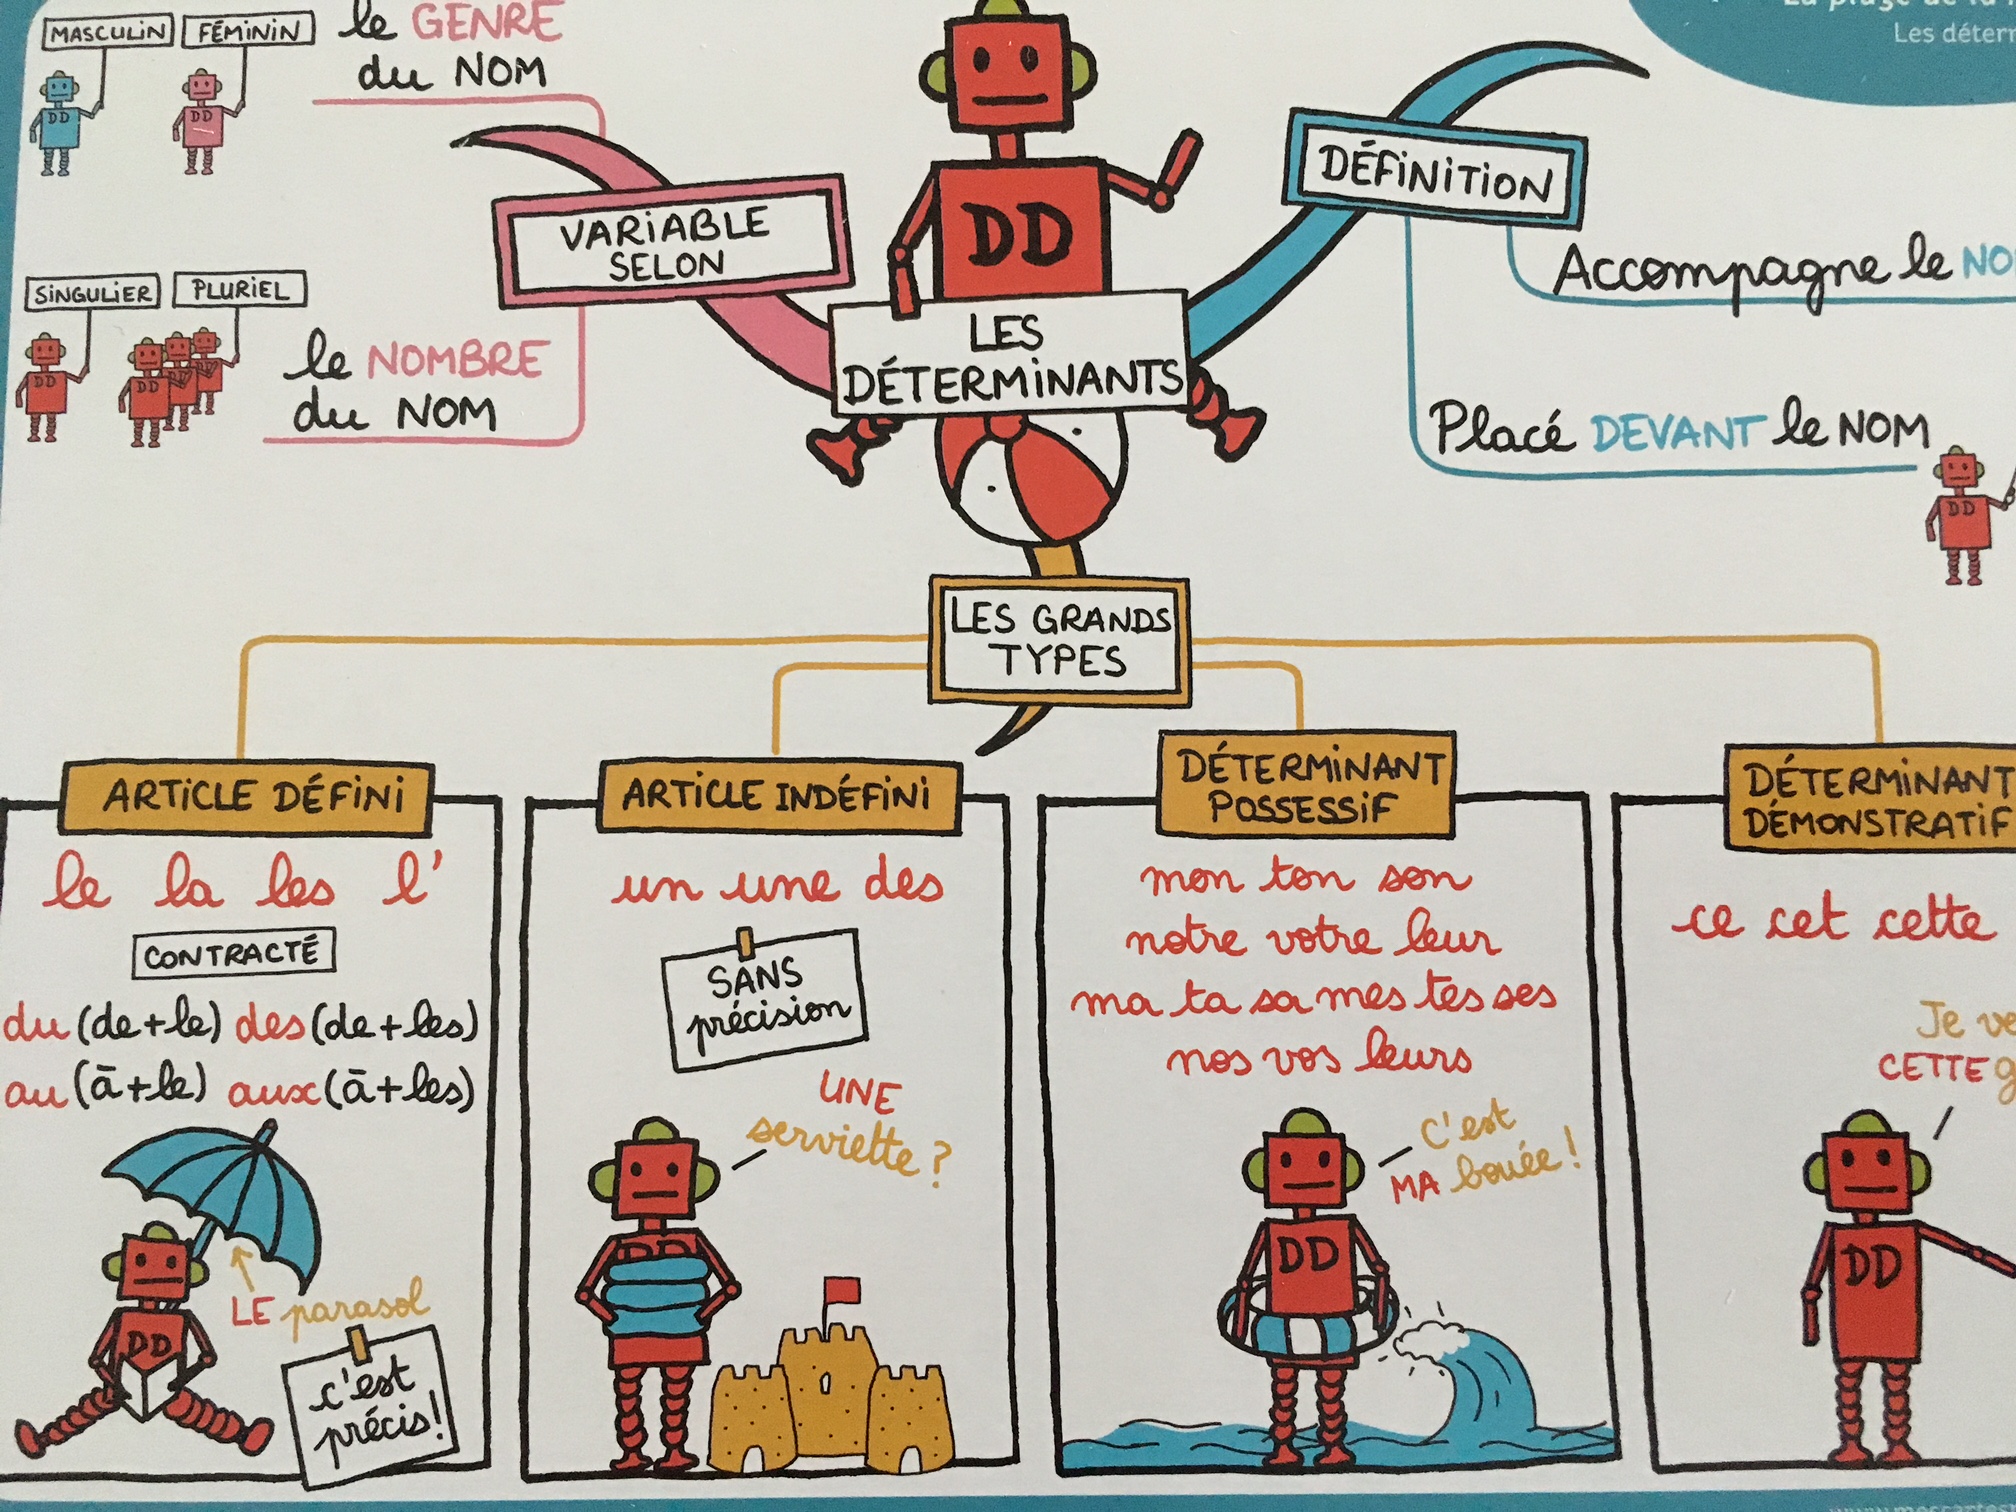 MASCULIN FÉMININ
le GENRE
du NOM
SINGULIER PLURIEL
le NOMBRE
du NOM
VARIABLE
SELON
DD
LES
DÉTERMINANTS
Les
DÉFINITION
Accompagne le
Placé DEVANT le NOM
LES GRANDS
TYPES
ARTICLE DÉFINI
le la les l'
CONTRACTÉ
du (de+le) des (de+les)
au (à+le) aux (à+les)
LE parasol
DD
c'est
précis!
ARTICLE INDÉFINI
un une des
SANS
précision
UNE
serviette ?
DD
DÉTERMINANT
POSSESSIF
mon ton son
notre votre leur
ma ta sa mes tes ses
nos vos leurs
C'est
MA bouée !
DD
DÉTERMINANT
DÉMONSTRATIF
ce cet cette
Je
CETTE
DD
DD
DD
DD
DD
DD